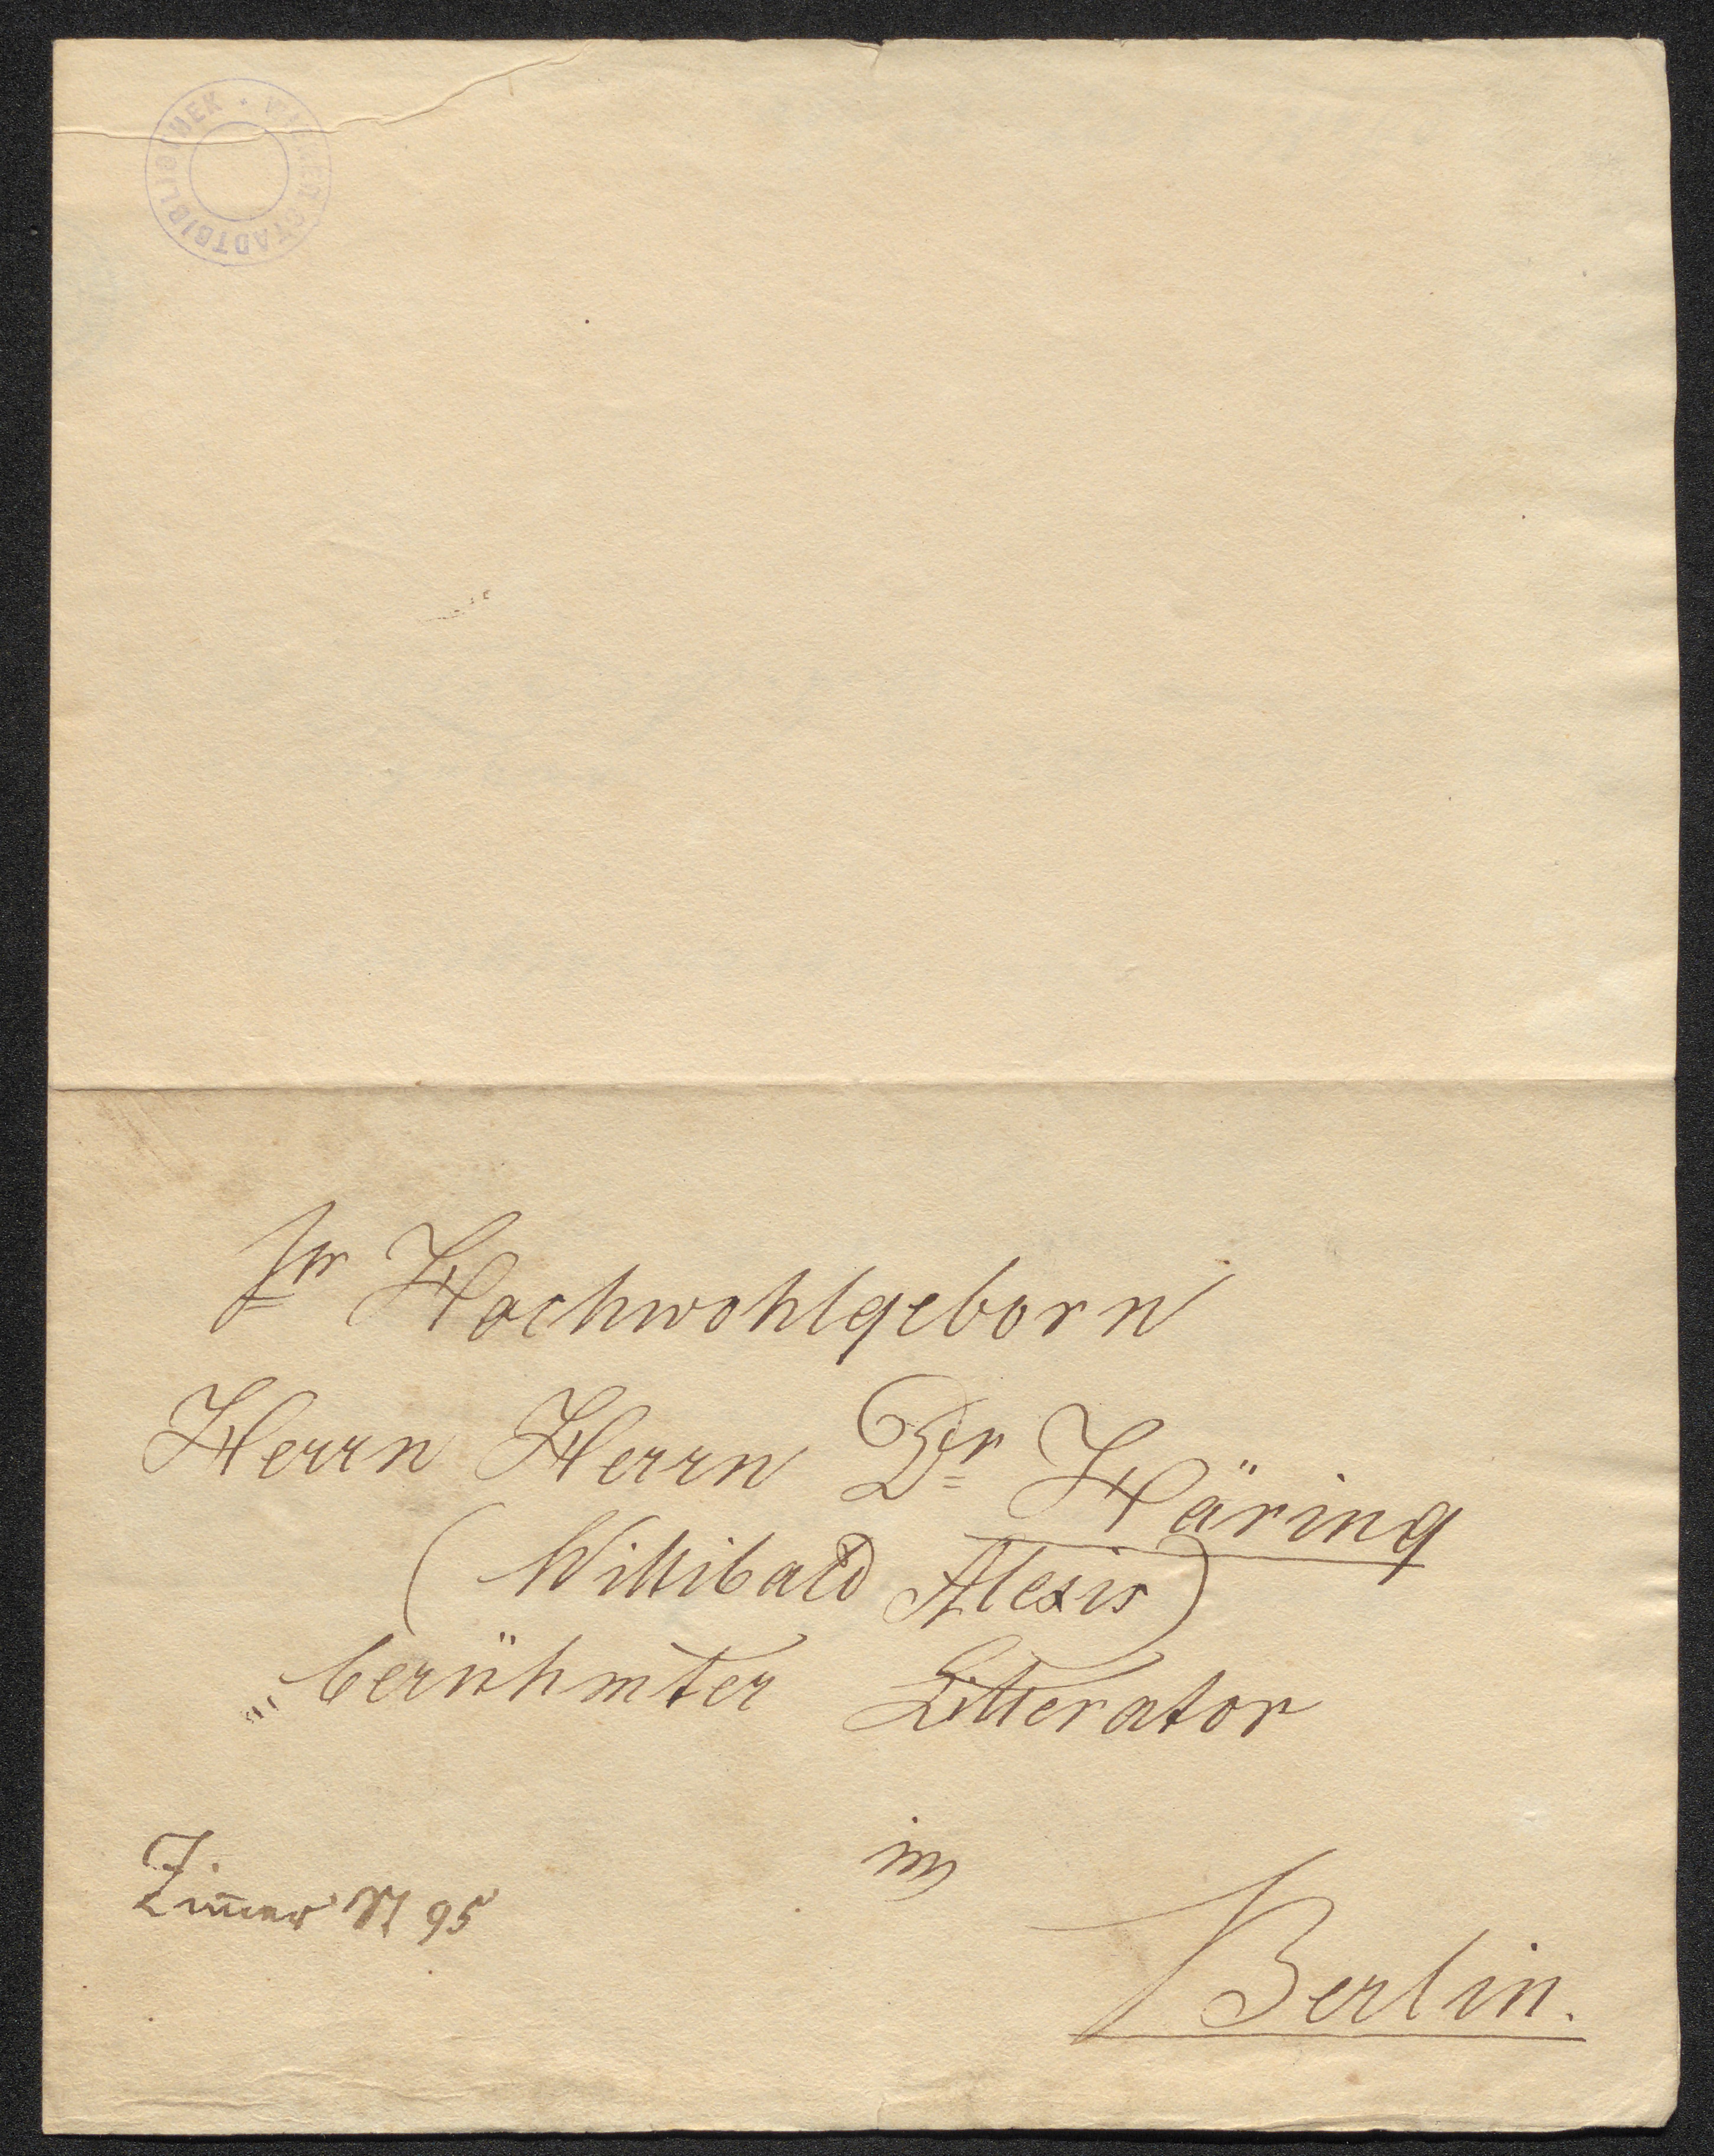 WIENER STADTBIBLIOTHEK
Sr Hochwohlgeborn
Herrn Herrn Dr Häring
(Willibald Alexis)
berühmter Litterator
in
Zim̅er N 95
Berlin.